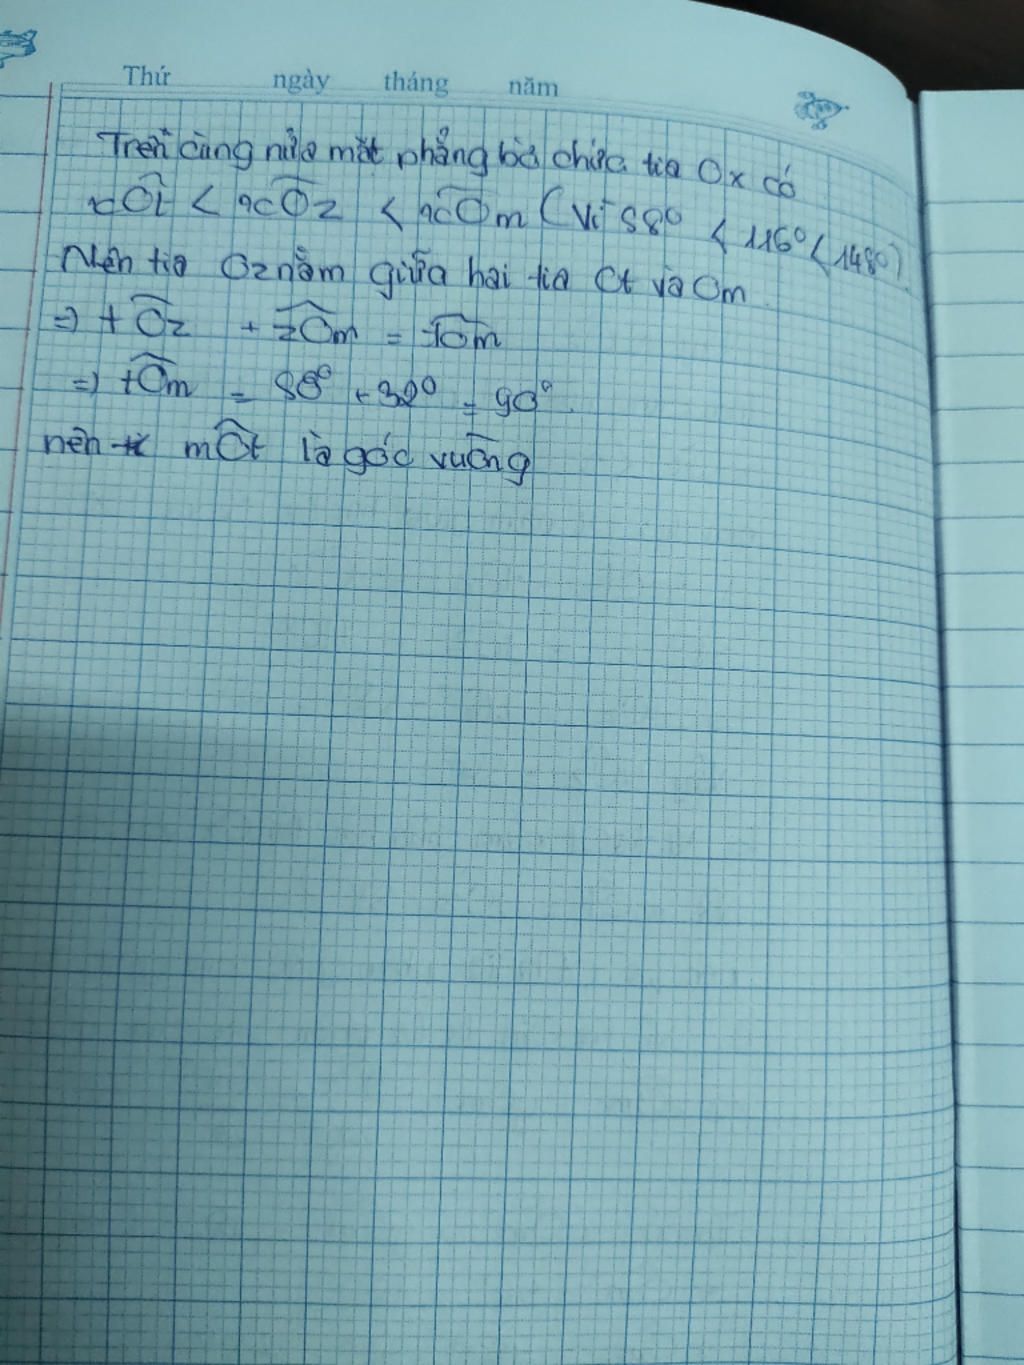 Thứ ngày tháng năm
Trên cùng nửa mặt phẳng bờ chứa tia Ox có
xÔt < xÔz < xÔm (Vì 58° < 116° < 148°)
Nên tia Oz nằm giữa hai tia Ot và Om
=> tÔz + zÔm = tÔm
=> tÔm = 58° + 32° = 90°.
nên mÔt là góc vuông